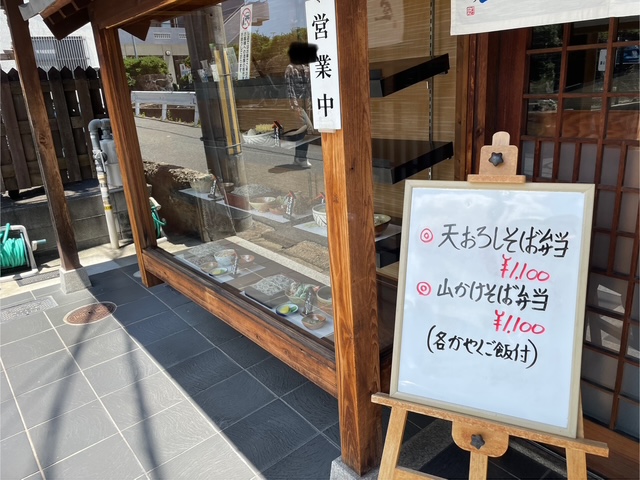 営業中
◎ 天おろしそば弁当
¥1,100
◎ 山かけそば弁当
¥1,100
(各かやくご飯付)